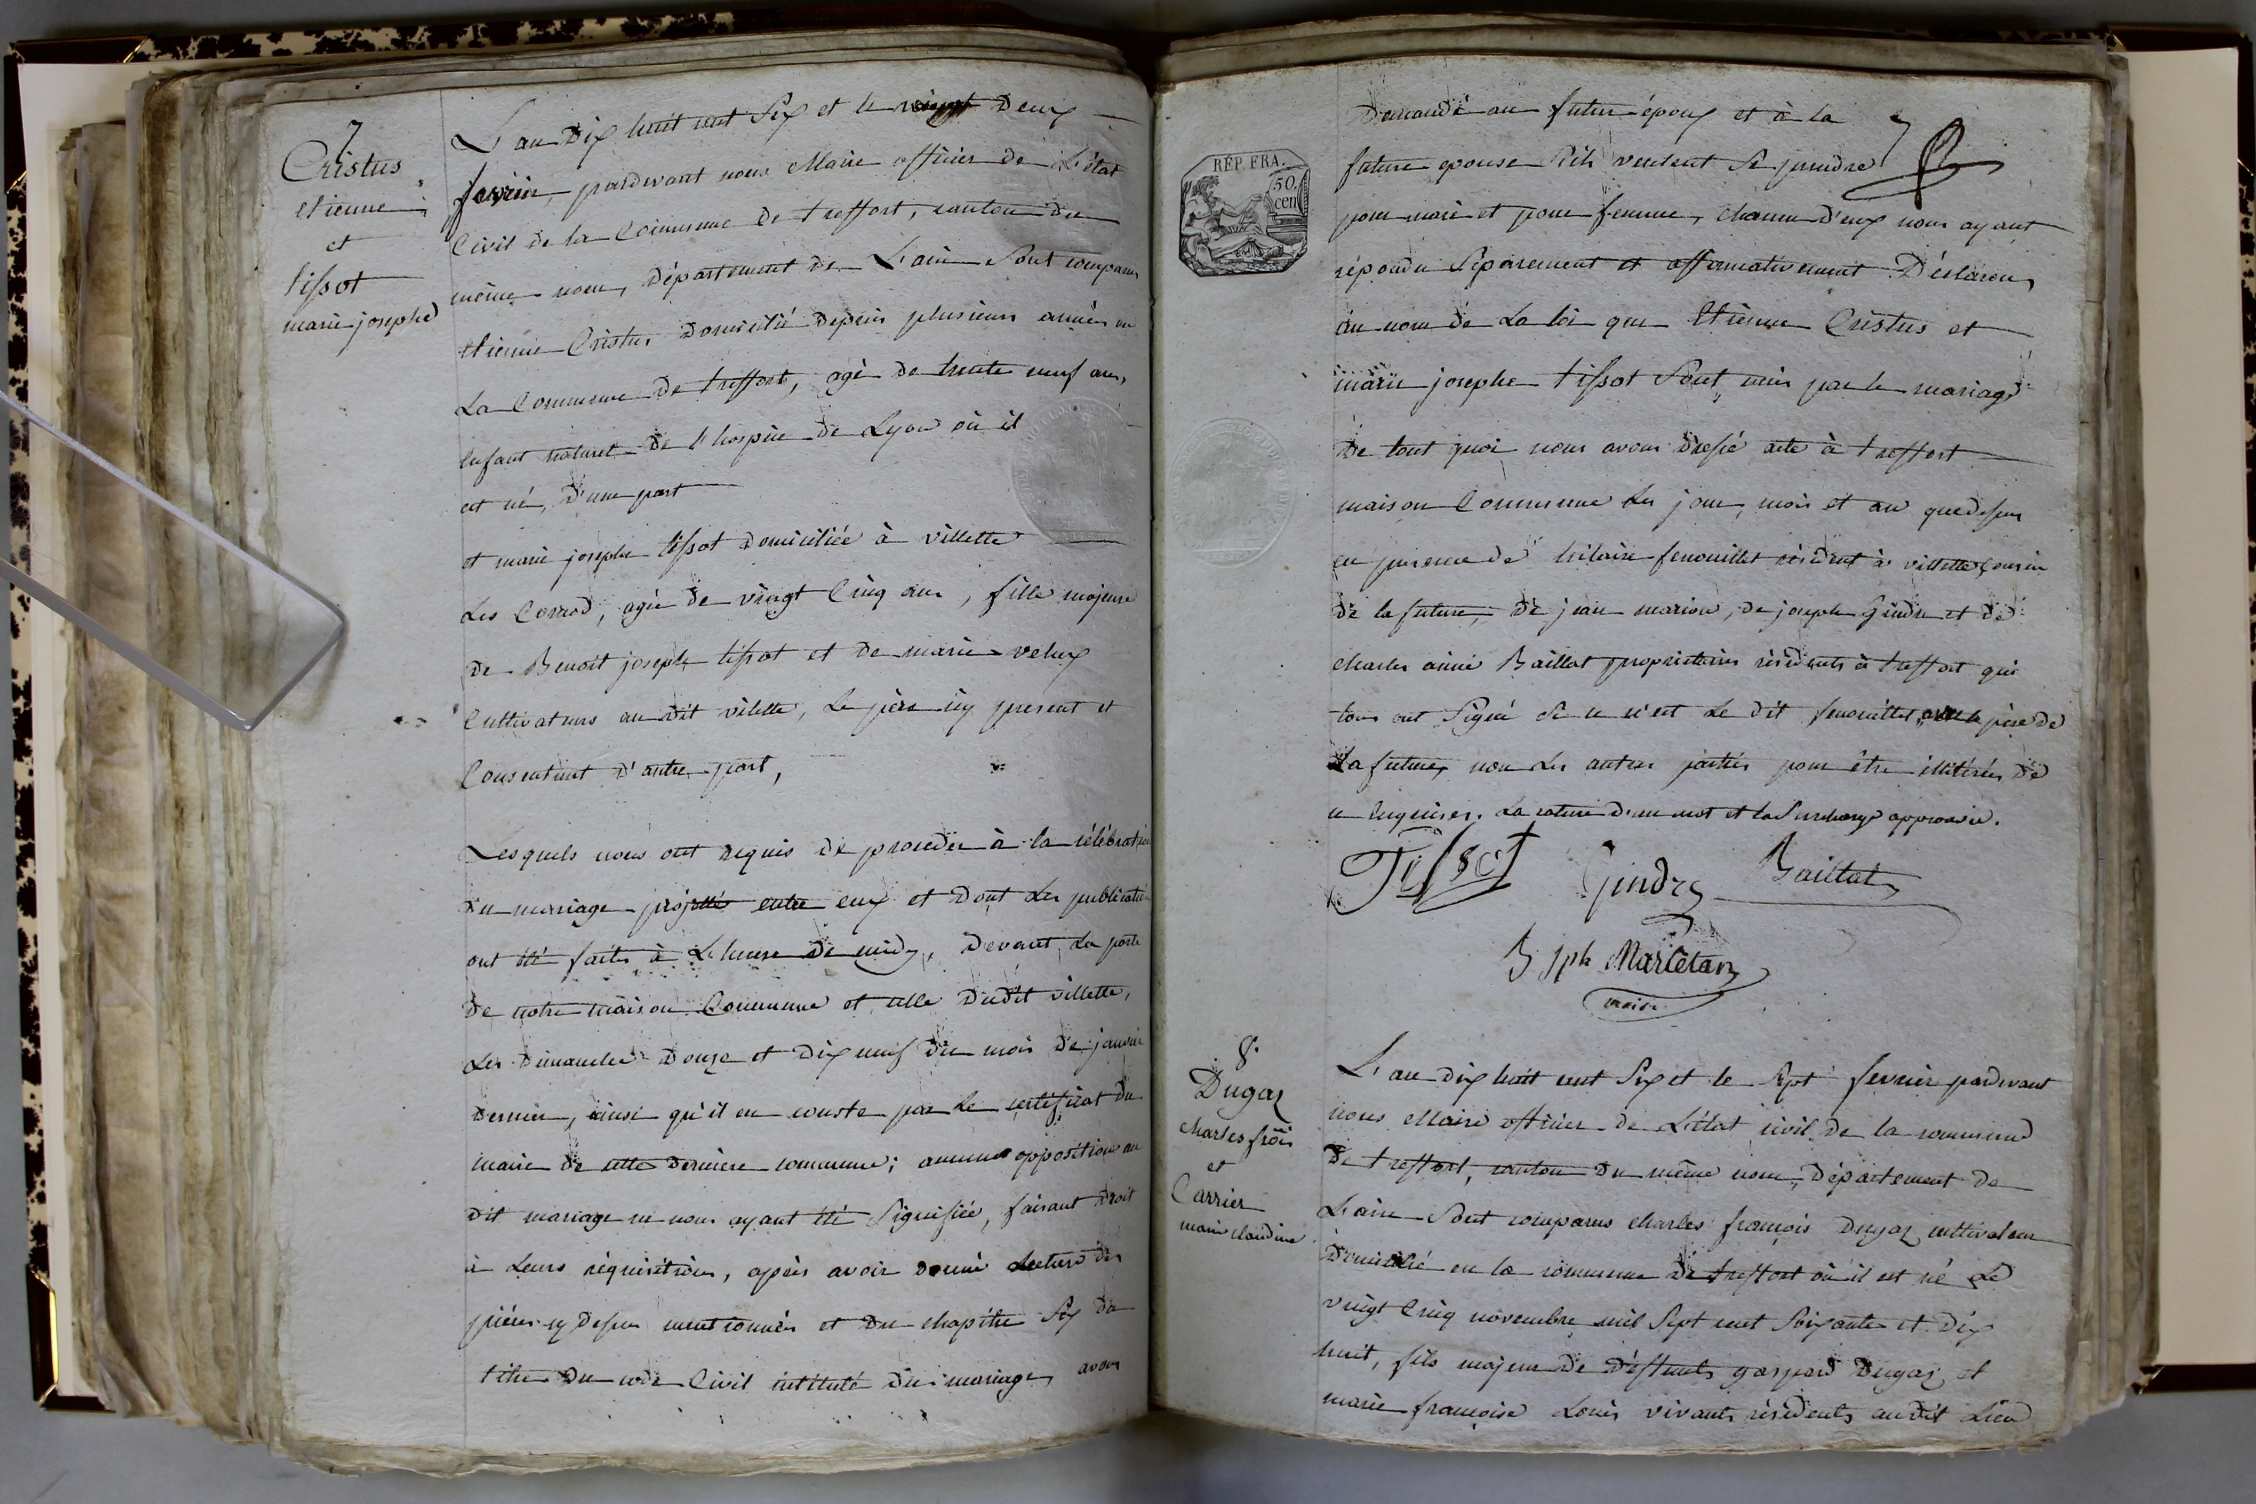 7
Cristus
etienne
et
tissot
marie josephe
L'an Dix huit cent Six et le vingt Deux
fevrier, pardevant nous Maire officier de L'état
Civil de la Commune de treffort, canton du
même nom, Département de L'ain Sont comparus
etienne Cristus Domicilié depuis plusieurs années en
La Commune de treffort, agé de trente neuf ans,
Enfant naturel de l'hospice de Lyon où il
est né, D'une part
et marie josephe tissot Domiciliée à villette
Les Cornod, agée de vingt Cinq ans, fille majeure
de Benoit joseph tissot et de marie
Cultivateurs au dit vilette, Le père icy present et
Consentant D'autre part,
Lesquels nous ont requis de proceder à la célébration
du mariage projetté entre eux et Dont Les publications
ont été faites à L'heure de midy, Devant La porte
De notre maison Commune et celle Dudit villette,
Les Dimanches Douze et Dix neuf du mois de janvier
Dernier, ainsi qu'il en conste par Le certificat du
maire de cette Derniere commune; aucune opposition au
dit mariage ne nous ayant été Signifiée, faisant Droit
à Leurs réquisitions, après avoir donné Lecture des
pièces cy dessus mentionnées et Du chapitre Six du
titre Du code Civil intitulé du mariage, avons
RÉP. FRA.
50
cen
Demandé au futur époux et à la
future epouse S'ils veulent Se prendre
pour mari et pour femme, chacun d'eux nous ayant
répondu Séparement et affirmativement Déclarons
au nom de La loi que Etienne Cristus et
marie josephe tissot Sont unis par le mariage
De tout quoi nous avons dressé acte à treffort
maison Commune Les jour, mois et an que dessus
en presence de hilaire fenouillet résident à villette Cousin
de la future, de jean marion, de joseph Gindre et de
charles aimé Baillat propriétaires résidents à treffort qui
tous ont Signé Si ce n'est Le dit fenouillet, avec le père de
La future, non Les autres parties pour être illitérées de
ce Enquises. La rature d'un mot et la Surcharge approuvée.
Tissot Gindre Baillat
B Jph Martelan
maire
8.
Dugaz
charles frois
et
Carrier
marie claudine
L'an dix huit cent Six et le Sept fevrier pardevant
nous Maire officier de L'état civil de la commune
De treffort, canton Du même nom, Département de
L'ain Sont comparus charles françois Dugaz cultivateur
Domicilié en la commune de treffort où il est né Le
vingt Cinq novembre mil Sept cent Soixante et Dix
huit, fils majeur De Deffunts gaspard Dugaz et
marie françoise Louis vivants résidents audit Lieu